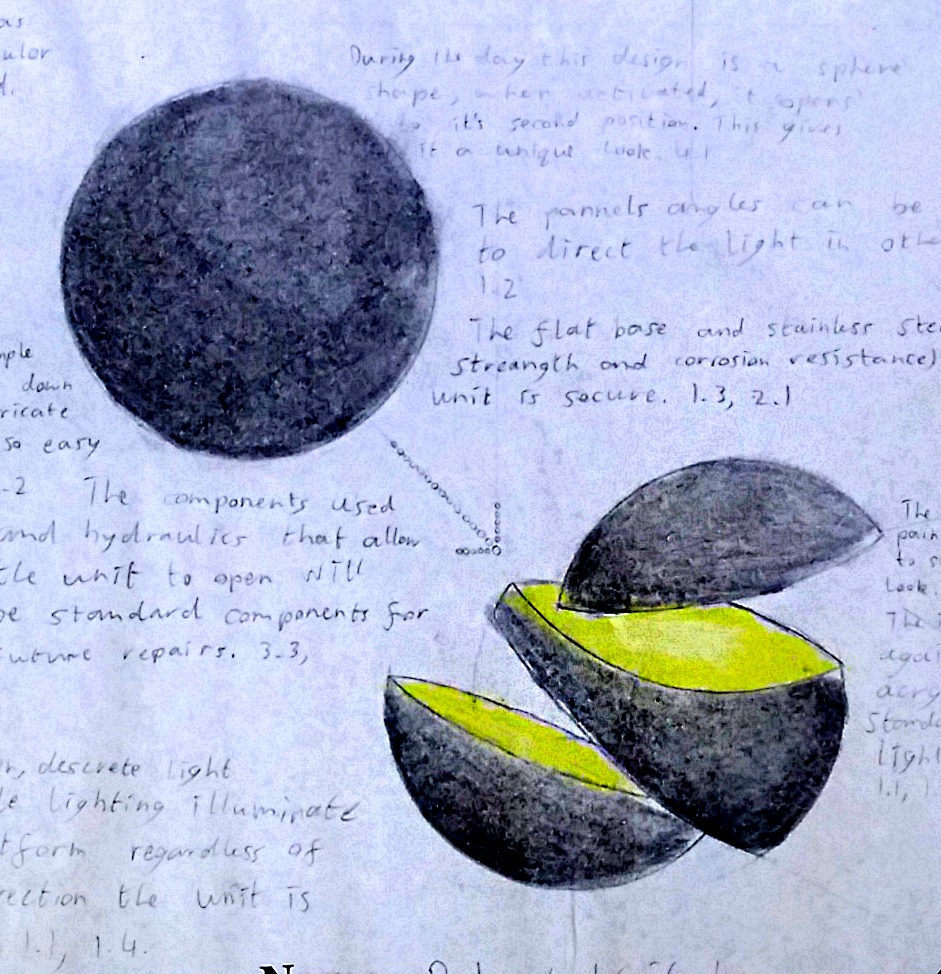 as
ular
d.
During the day this design is a sphere
shape, when activated, it opens
to it's second position. This gives
it a unique look. 4.1
The pannels angles can be
to direct the light in othe
1.2
The flat base and stainless stee
streangth and corrosion resistance)
unit is secure. 1.3, 2.1
mple
down
ricate
so easy
.2
The components used
and hydraulics that allow
tle unit to open will
be standard components for
future repairs. 3.3,
The
pain
to s
Look.
The
agai
acry
Standa
light
1.1, 1.
on, descrete light
le lighting illuminate
tform regardless of
rection the unit is
, 1.1, 1.4.